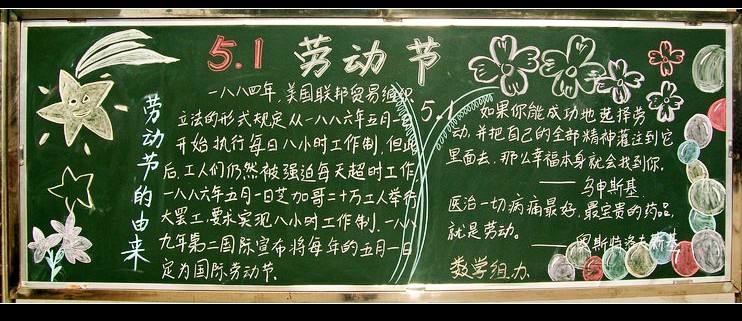 5.1 劳动节
劳动节的由来
一八八四年,美国联邦贸易组织
立法的形式规定从一八八六年五月一
开始执行每日八小时工作制,但此
后,工人们仍然被强迫每天超时工作
一八八六年五月一日芝加哥二十万工人举行
大罢工,要求实现八小时工作制,一八八
九年第二国际宣布将每年的五月一日
定为国际劳动节.
5.1
如果你能成功地选择劳
动,并把自己的全部精神灌注到它
里面去,那么幸福本身就会找到你.
——乌申斯基
医治一切病痛最好、最宝贵的药品,
就是劳动。
——奥斯特洛夫斯基
数学组办